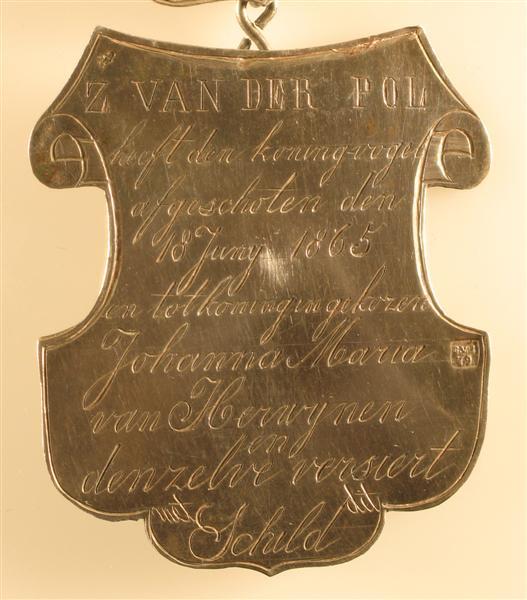 Z VAN DER POL
heeft den koningvogel
afgeschoten den
18 Juny 1865
en tot koningin gekozen
Johanna Maria
van Herwynen
en
denzelve versiert
met dit
Schild